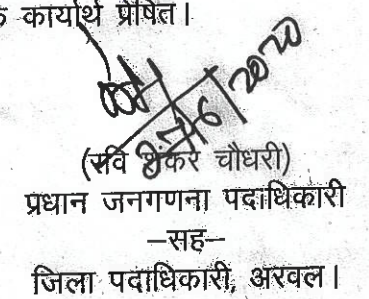 क कार्यार्थ प्रेषित।
(रवि शंकर चौधरी)
प्रधान जनगणना पदाधिकारी
–सह–
जिला पदाधिकारी, अरवल।